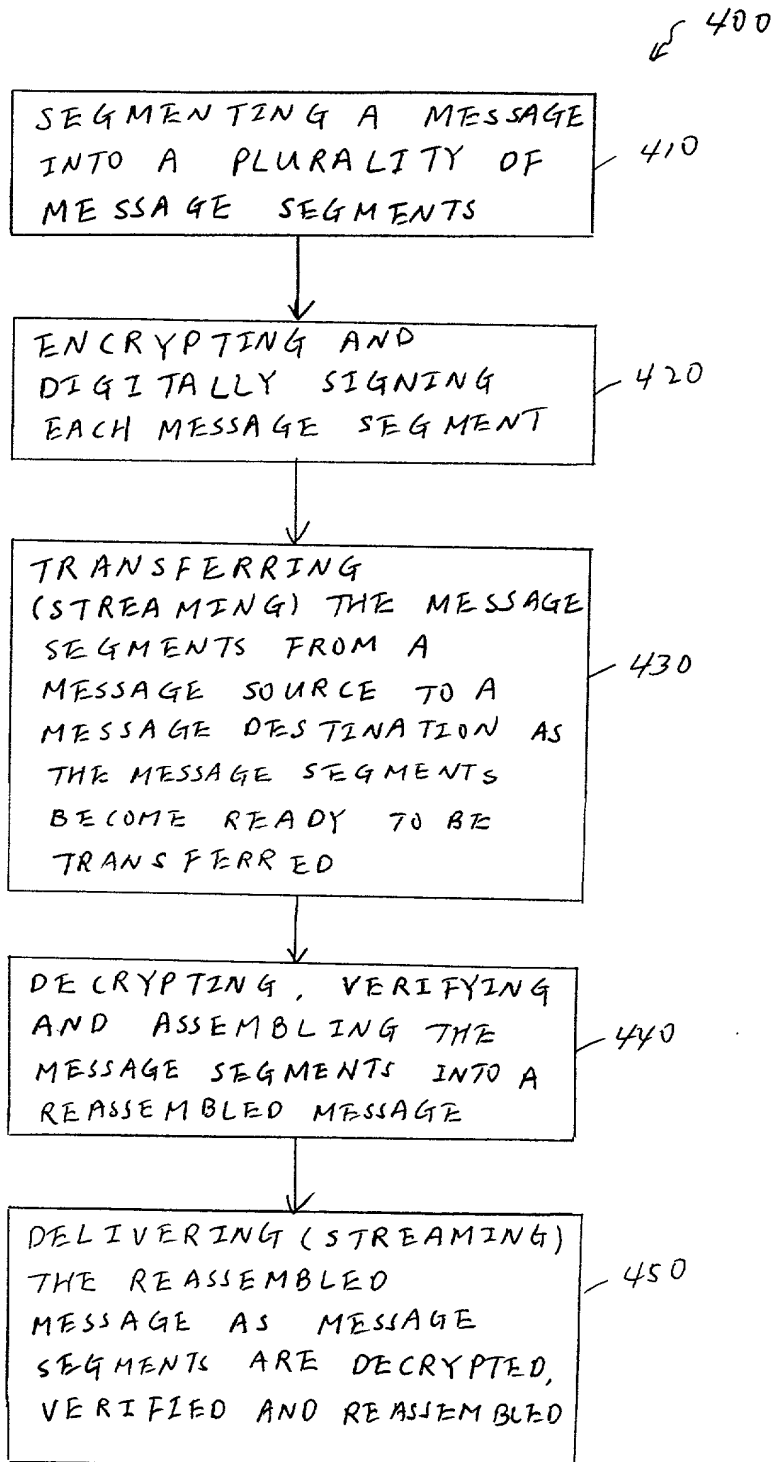 400
SEGMENTING A MESSAGE
INTO A PLURALITY OF
MESSAGE SEGMENTS
410
ENCRYPTING AND
DIGITALLY SIGNING
EACH MESSAGE SEGMENT
420
TRANSFERRING
(STREAMING) THE MESSAGE
SEGMENTS FROM A
MESSAGE SOURCE TO A
MESSAGE DESTINATION AS
THE MESSAGE SEGMENTS
BECOME READY TO BE
TRANSFERRED
430
DECRYPTING, VERIFYING
AND ASSEMBLING THE
MESSAGE SEGMENTS INTO A
REASSEMBLED MESSAGE
440
DELIVERING (STREAMING)
THE REASSEMBLED
MESSAGE AS MESSAGE
SEGMENTS ARE DECRYPTED,
VERIFIED AND REASSEMBLED
450